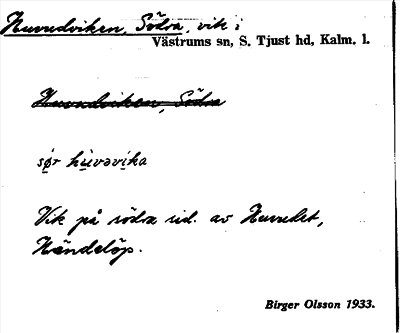 Huvudviken, Södra, vik i
Västrums sn, S. Tjust hd, Kalm. l.
Huvudviken, Södra
sø̣r hùvəvika
Vik på södra sid. av Huvudet,
Händelöp.
Birger Olsson 1933.